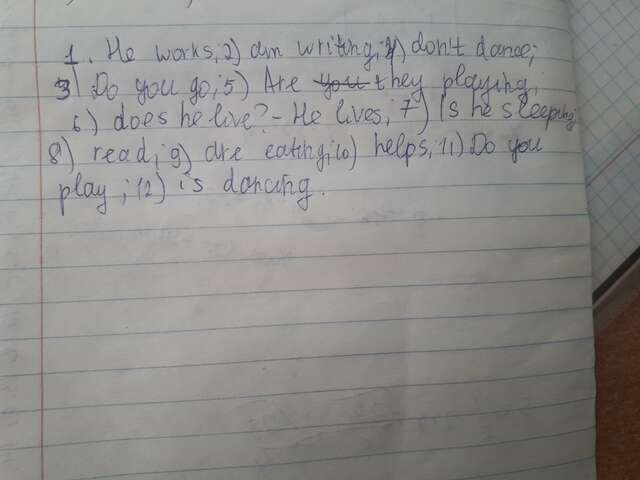 1. He works; 2) am writing; 4) don't dance;
3) Do you go; 5) Are you they playing;
6) does he live? - He lives; 7) Is he sleeping;
8) read; 9) are eating; 10) helps; 11) Do you
play; 12) is dancing.